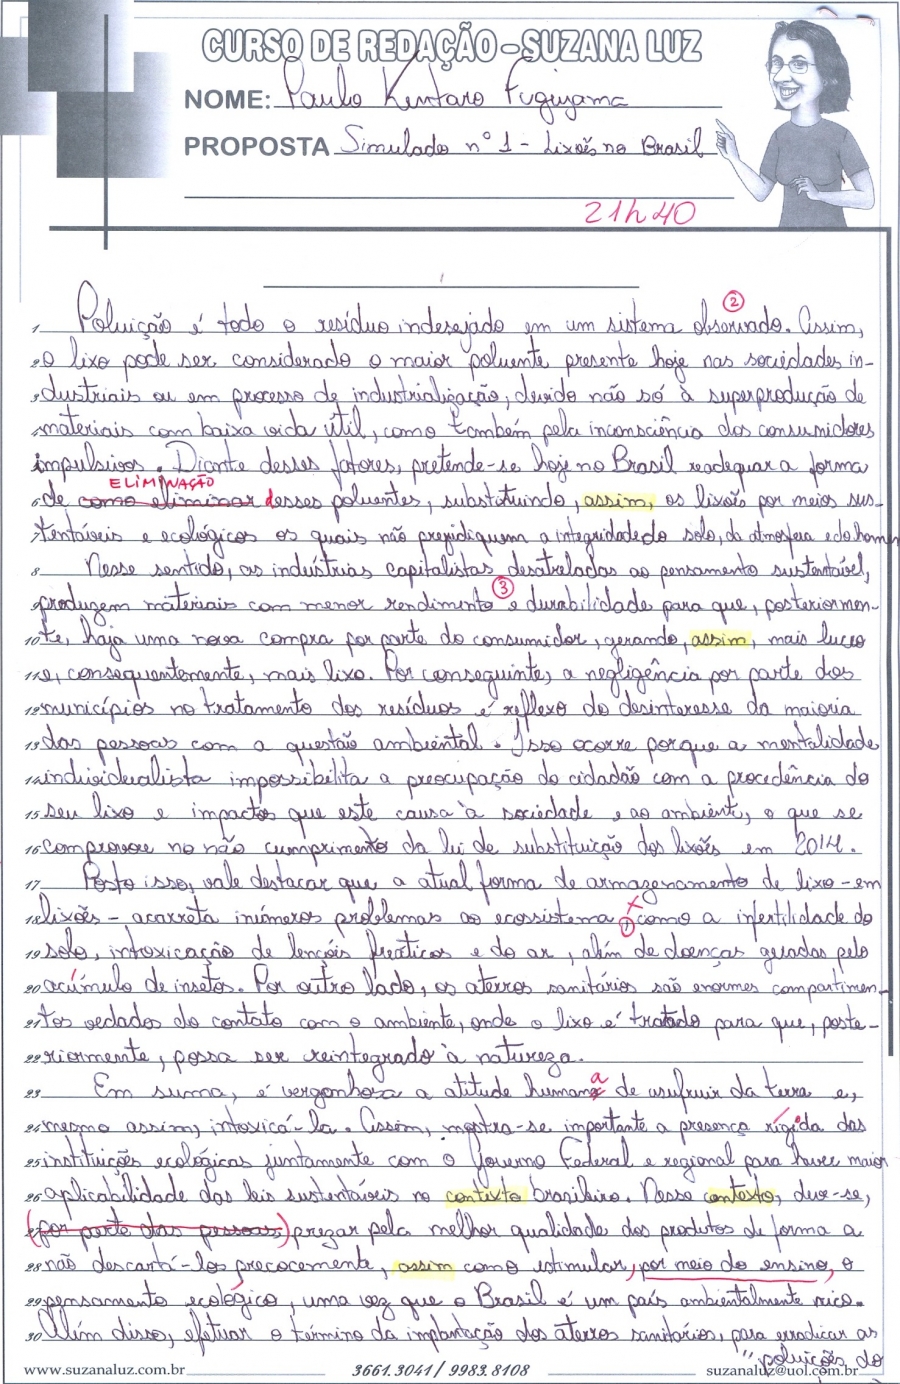 CURSO DE REDAÇÃO - SUZANA LUZ
NOME: Paulo Kentaro Fugiyama
PROPOSTA Simulado nº 1 - Lixões no Brasil
21h40
2
1 Poluição é todo o resíduo indesejado em um sistema observado. Assim,
2 o lixo pode ser considerado o maior poluente presente hoje nas sociedades in-
3 dustriais ou em processo de industrialização, devido não só à superprodução de
4 materiais com baixa vida útil, como também pela inconsciência dos consumidores
impulsivos. Diante desses fatores, pretende-se hoje no Brasil readequar a forma
ELIMINAÇÃO
6 de como eliminar desses poluentes, substituindo, assim, os lixões por meios sus-
7 tentáveis e ecológicos os quais não prejudiquem a integridade do solo, da atmosfera e do homem
8 Nesse sentido, as indústrias capitalistas desatreladas ao pensamento sustentável,
3
9 produzem materiais com menor rendimento e durabilidade para que, posteriormen-
10 te, haja uma nova compra por parte do consumidor, gerando, assim, mais lucro
11 e, consequentemente, mais lixo. Por conseguinte, a negligência por parte dos
12 municípios no tratamento dos resíduos é reflexo do desinteresse da maioria
13 das pessoas com a questão ambiental. Isso ocorre porque a mentalidade
14 individualista impossibilita a preocupação do cidadão com a procedência do
15 seu lixo e impactos que este causa à sociedade e ao ambiente, o que se
16 comprove no não cumprimento da lei de substituição dos lixões em 2014.
17 Posto isso, vale destacar que a atual forma de armazenamento de lixo - em
18 lixões - acarreta inúmeros problemas ao ecossistema, como a infertilidade do
1
19 solo, intoxicação de lençóis freáticos e do ar, além de doenças geradas pelo
20 acúmulo de insetos. Por outro lado, os aterros sanitários são enormes compartimen-
21 tos vedados do contato com o ambiente, onde o lixo é tratado para que, poste-
22 riormente, possa ser reintegrado à natureza.
23 Em suma, é vergonhoza a atitude humana de usufruir da terra e,
24 mesmo assim, intoxicá-la. Assim, mostra-se importante a presença rígida das
25 instituições ecológicas juntamente com o Governo Federal e regional para haver maior
26 aplicabilidade das leis sustentáveis no contexto brasileiro. Nesse contexto, deve-se,
(por parte das pessoas) prezar pela melhor qualidade dos produtos de forma a
28 não descartá-los precocemente, assim como estimular, por meio do ensino, o
29 pensamento ecológico, uma vez que o Brasil é um país ambientalmente rico.
30 Além disso, efetuar o término da implantação dos aterros sanitários, para erradicar as
" poluições do
www.suzanaluz.com.br 3661.3041 / 9983.8108 suzanaluz@uol.com.br